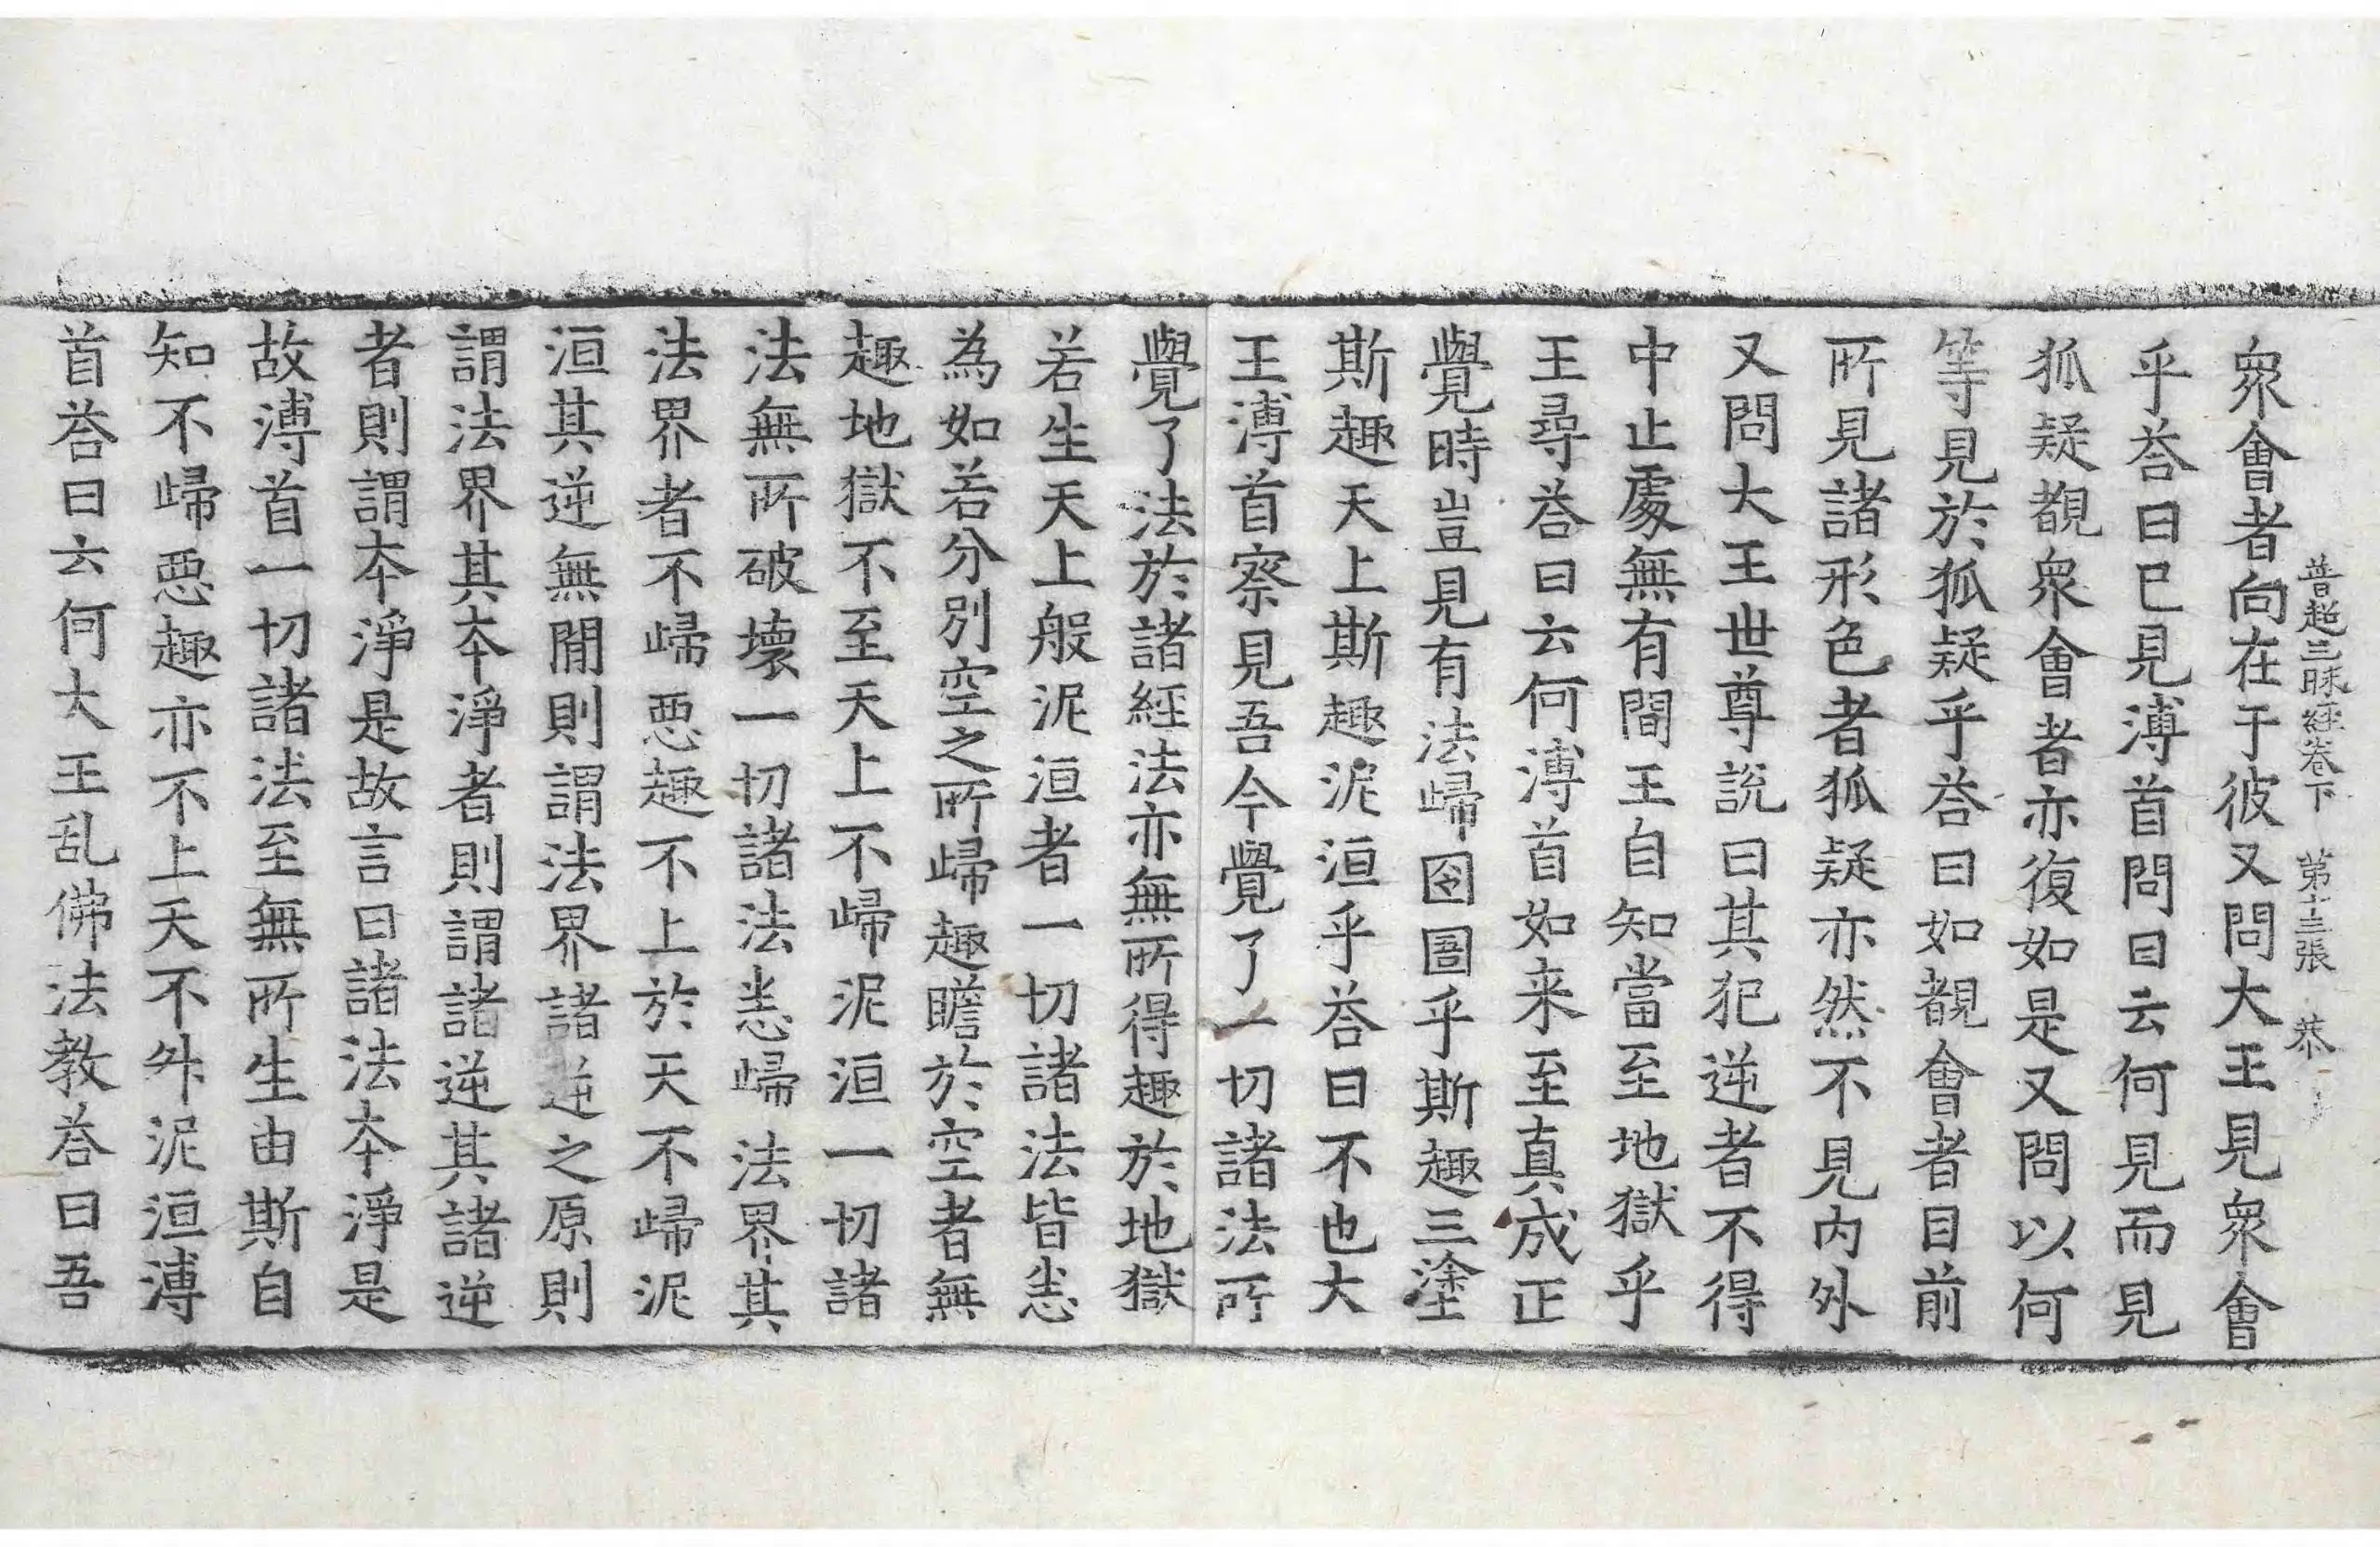 普超三昧經卷下　第十三張　恭
衆會者向在于彼又問大王見衆會
乎荅曰已見溥首問曰云何見而見
狐疑覩衆會者亦復如是又問以何
等見於狐疑乎荅曰如覩會者目前
所見諸形色者狐疑亦然不見内外
又問大王世尊說曰其犯逆者不得
中止處無有間王自知當至地獄乎
王尋荅曰云何溥首如来至真成正
覺時豈見有法歸囹圄乎斯趣三塗
斯趣天上斯趣泥洹乎荅曰不也大
王溥首察見吾今覺了一切諸法所
覺了法於諸經法亦無所得趣於地獄
若生天上般泥洹者一切諸法皆悉
為如若分別空之所歸趣瞻於空者無
趣地獄不至天上不歸泥洹一切諸
法無所破壞一切諸法悉歸法界其
法界者不歸惡趣不上於天不歸泥
洹其逆無閒則謂法界諸逆之原則
謂法界其夲淨者則謂諸逆其諸逆
者則謂夲淨是故言曰諸法夲淨是
故溥首一切諸法至無所生由斯自
知不歸惡趣亦不上天不升泥洹溥
首荅曰云何大王乱佛法教荅曰吾